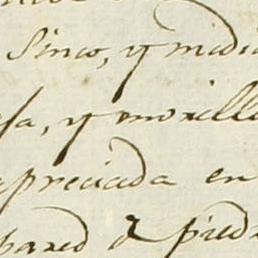 Sinco, y medi
sa, y morillo
apreciada en
pared d piedr